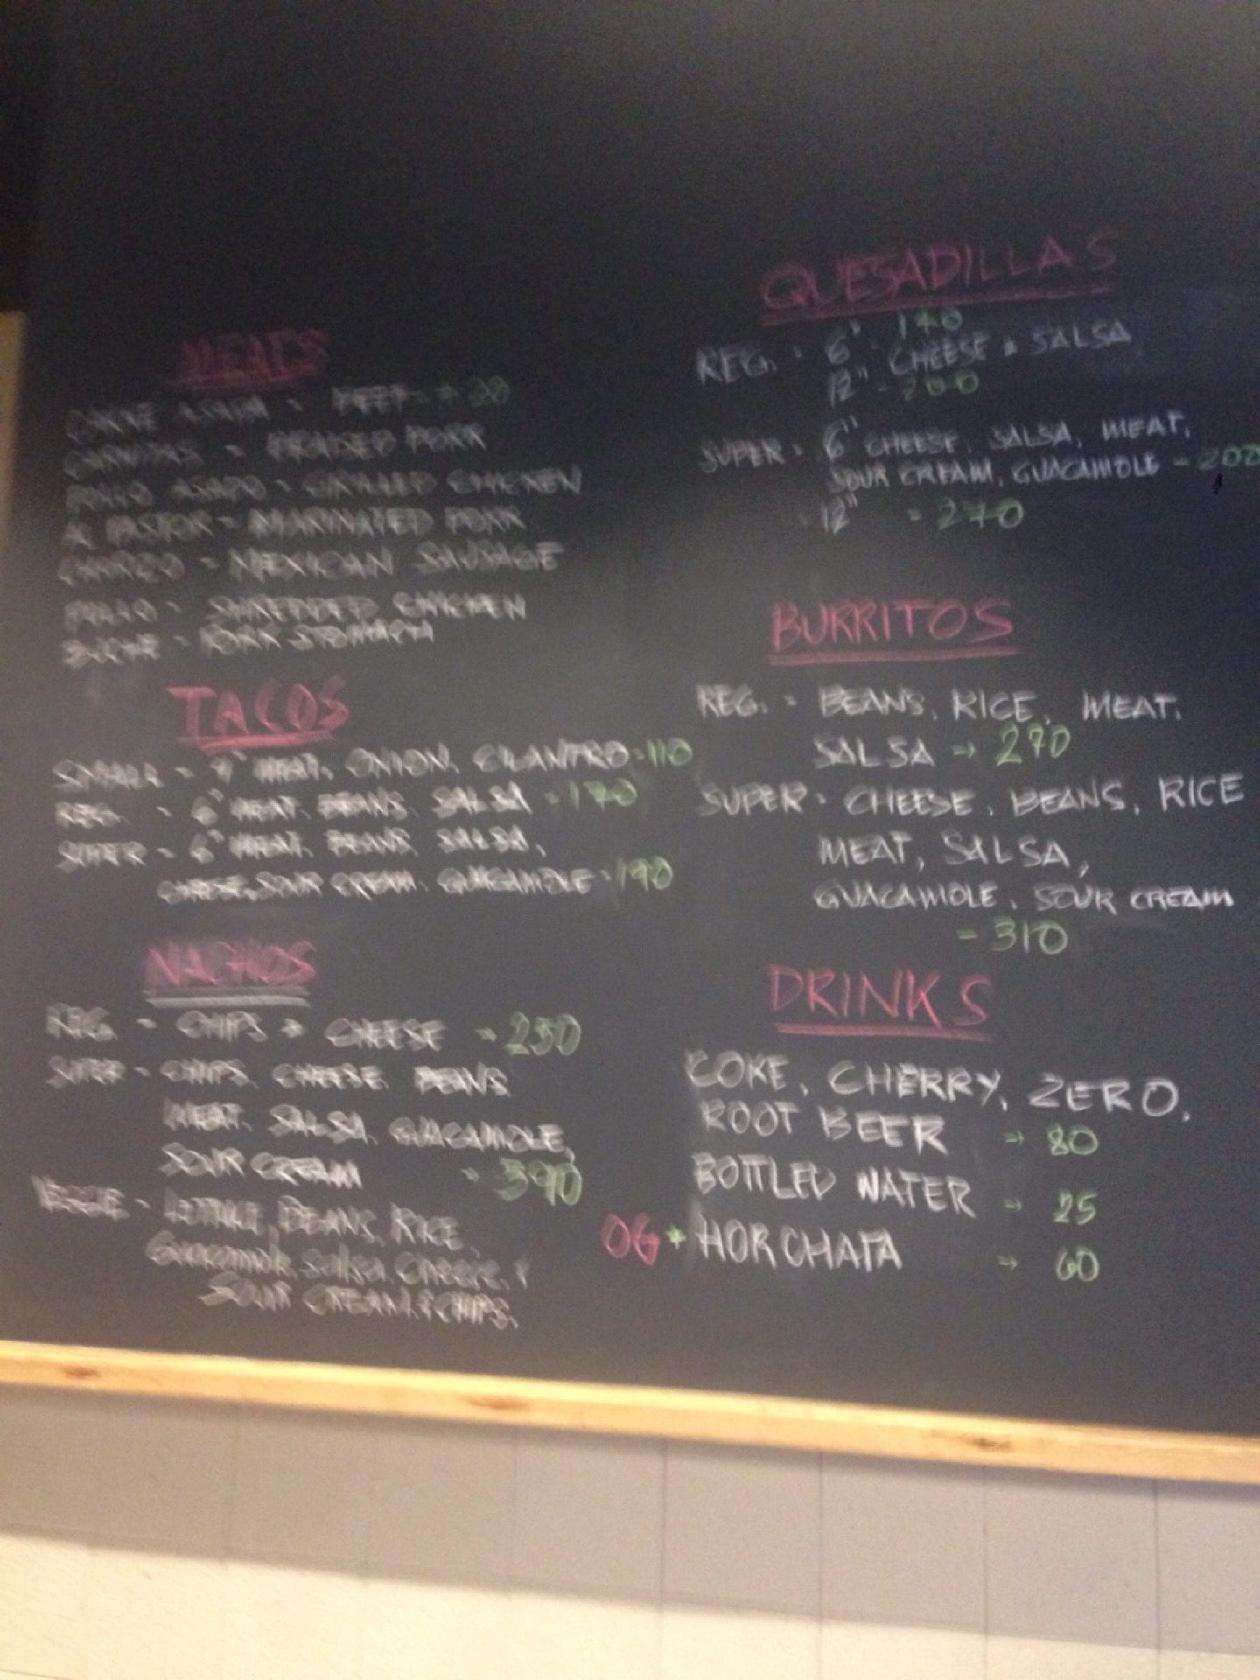 MEATS
CARNE ASADA = BEEF = + 20
CARNITAS = BRAISED PORK
POLLO ASADO = GRILLED CHICKEN
AL PASTOR = MARINATED PORK
CHORIZO = MEXICAN SAUSAGE
POLLO = SHREDDED CHICKEN
BUCHE = PORK STOMACH
TACOS
SMALL = 4" MEAT, ONION, CILANTRO = 110
REG. = 6" MEAT, BEANS, SALSA = 170
SUPER = 6" MEAT, BEANS, SALSA,
CHEESE, SOUR CREAM, GUACAMOLE = 190
NACHOS
REG. = CHIPS + CHEESE = 250
SUPER = CHIPS, CHEESE, BEANS
MEAT, SALSA, GUACAMOLE,
SOUR CREAM = 390
VEGGIE = LETTUCE, BEANS, RICE,
Guacamole, salsa, cheese,
SOUR CREAM & CHIPS.
QUESADILLA'S
REG. = 6" - 140
CHEESE & SALSA
12" - 200
SUPER = 6" CHEESE, SALSA, MEAT,
SOUR CREAM, GUACAMOLE - 202
12" = 270
BURRITOS
REG. = BEANS, RICE, MEAT,
SALSA → 270
SUPER = CHEESE, BEANS, RICE
MEAT, SALSA,
GUACAMOLE, SOUR CREAM
= 310
DRINKS
COKE, CHERRY, ZERO,
ROOT BEER → 80
BOTTLED WATER → 25
OG + HORCHATA → 60